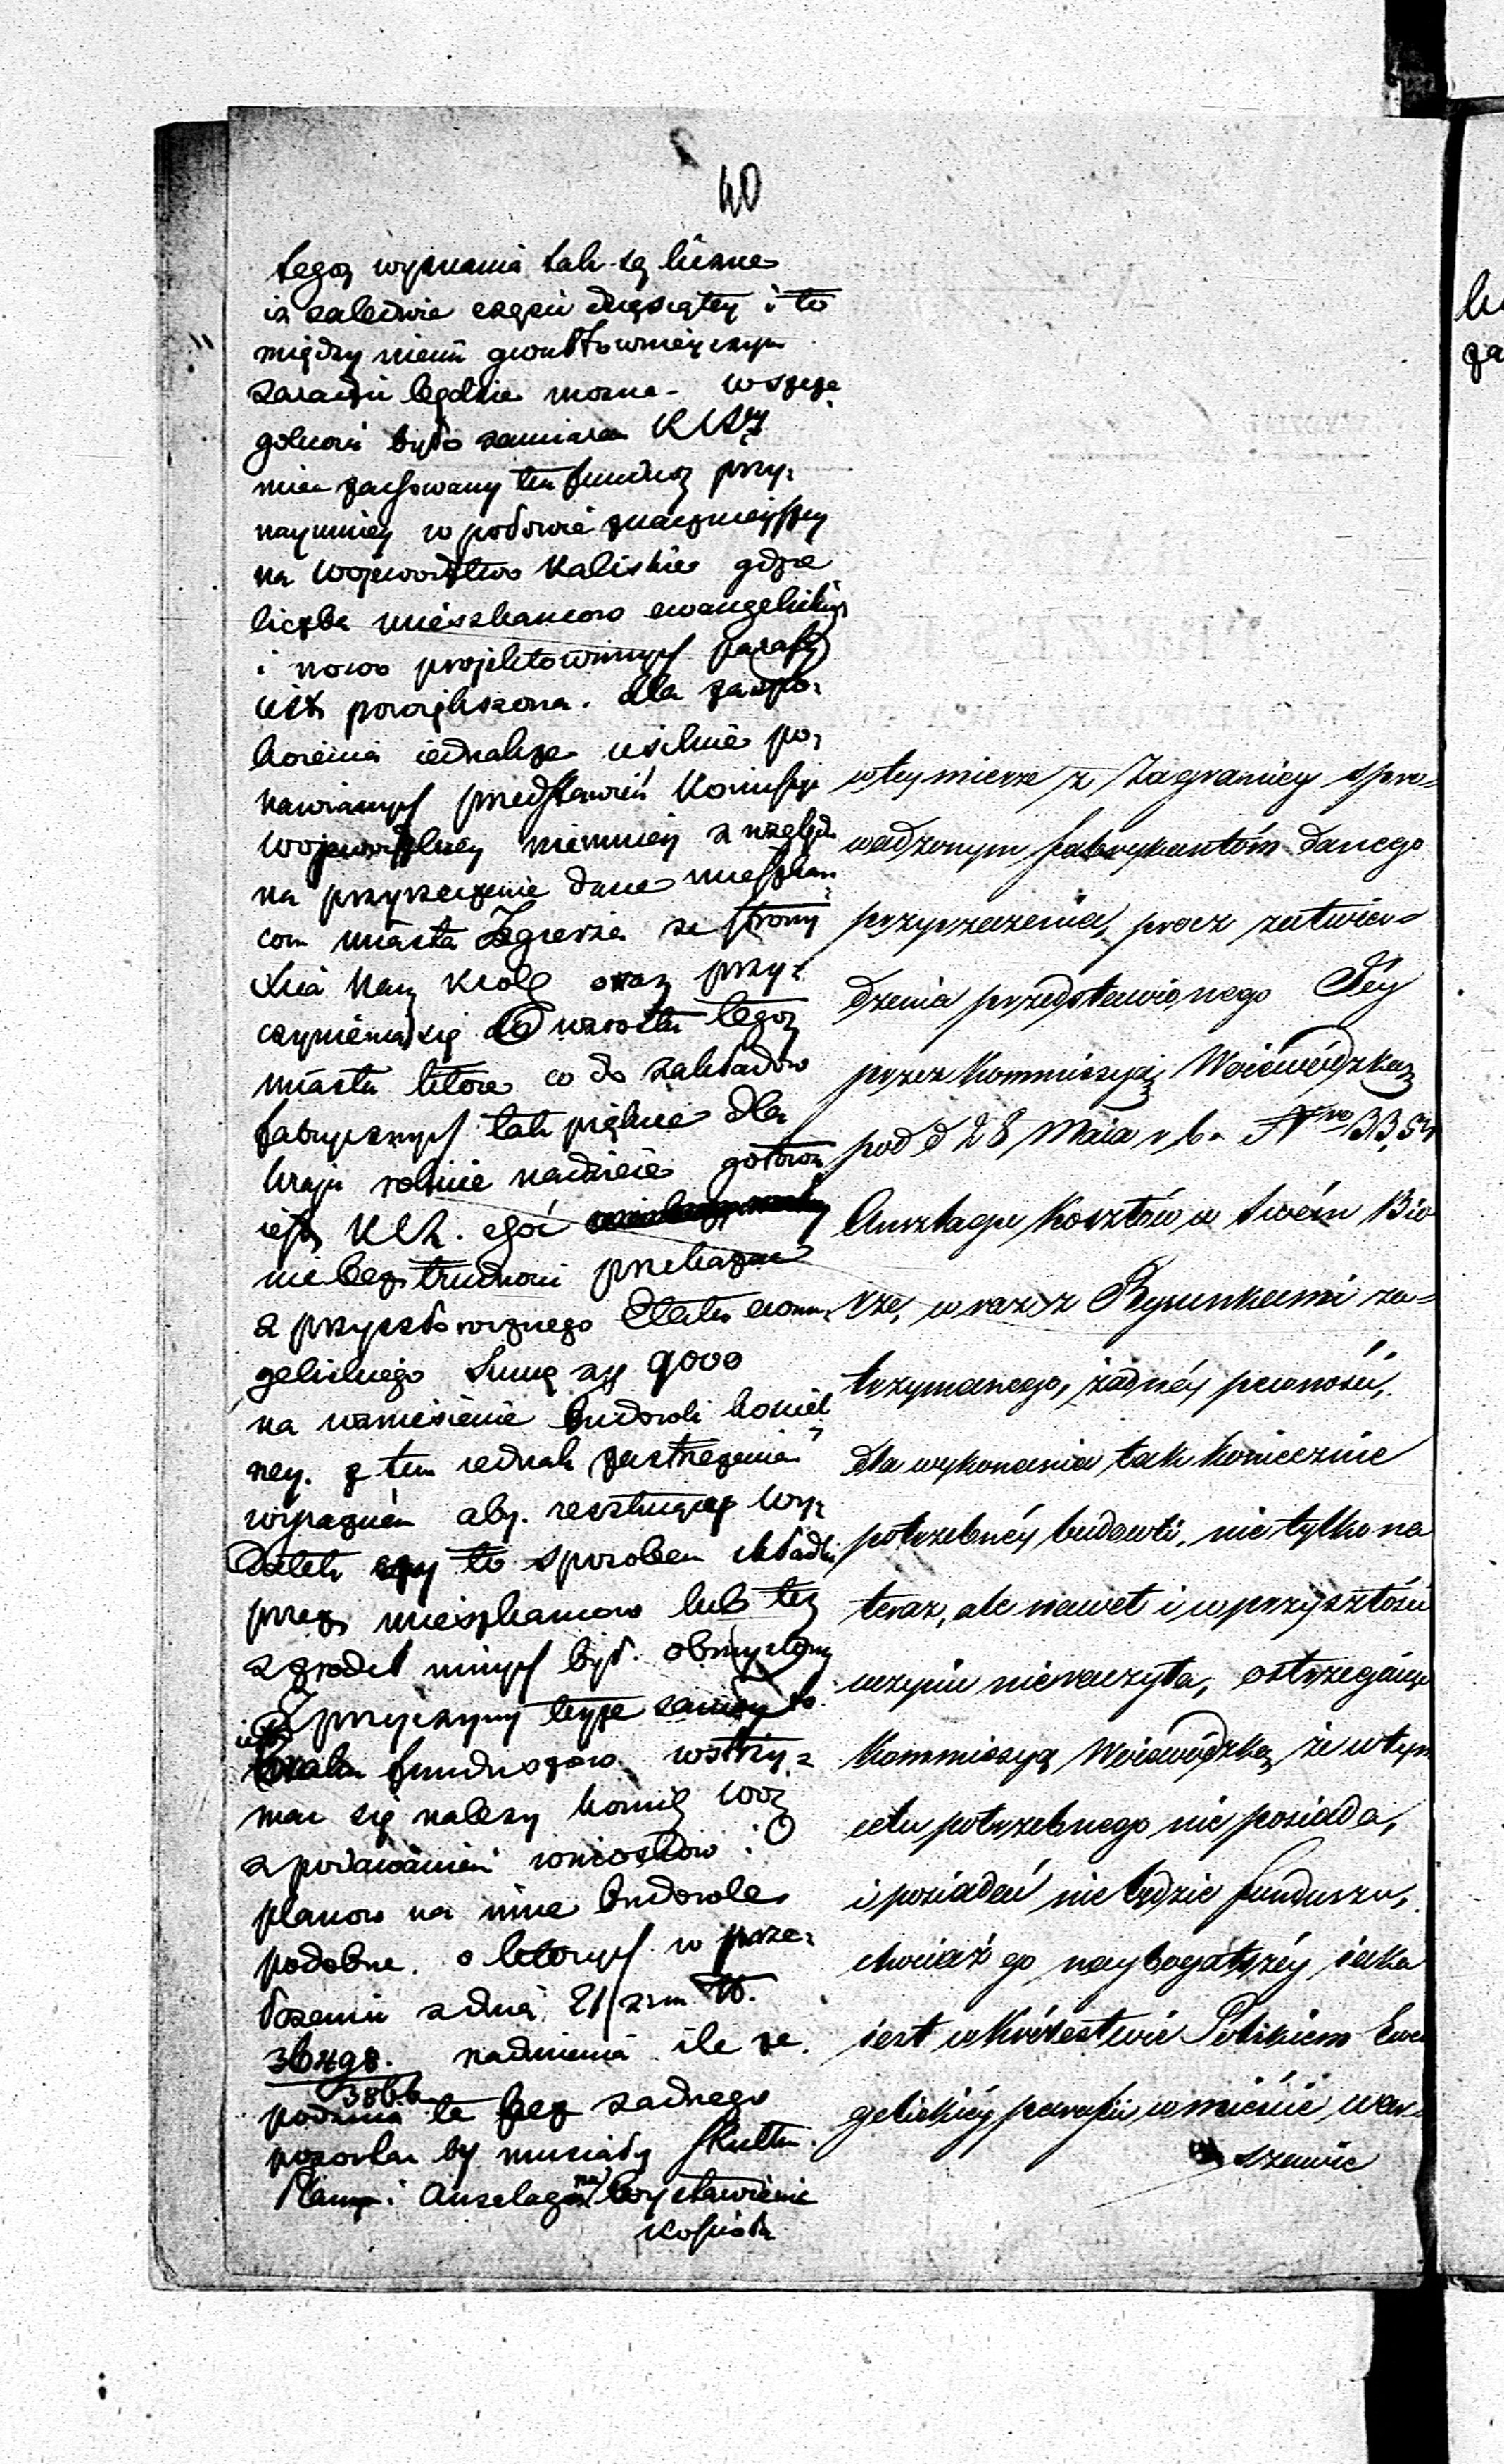 40
tegoż wyznania tak są liczne
iż zaledwie części dziesiątey i to
między niemi gwałtownieyszym
zaradzić będzie można. w szcze
golności było zamiarem KRSy
mieć zachowany ten fundusz przy=
naymniey w połowie znacznieyszey
na Wojewodztwo Kaliskie gdzie
liczba mieszkancow ewangelickich
i nowo projektowanych parafij
iest powiększona. dla zaspo=
koienia iednakże usilnie po=
nawianych przedstawień Komissyi
Wojewodzkiey niemniey z względu
na przyrzeczenie dane mieszkań
com miasta Zgierza ze strony
Xcia Nam. Krolg oraz przy=
czynienia się do wzrostu tegoż
miasta ktore co do zakładow
fabrycznych tak piękne dla
kraju rokuie nadzieie gotowa
iest KR.
nie bez trudnosci przekazać
z przyszło rocznego Etatu ewan
gelickiego Summę zł 9000
na wzniesienie budowli koscieł
ney. z tem iednak zastrzeżeniem
wyraznem aby resztuiący wy=
datek to sposobem składki
przez mieszkancow lub też
z zrodeł innych był obmyslony
Z przyczyny teyże samey to
iest
braku funduszow wstrzy=
mać się należy Komis. Woy
z podawaniem wniosków i
planow na inne budowle
podobne o ktorych w przeł
łożeniu z dnia 21/ zm N.
36498. nadmienia ile że
3866
podania te bez zadnego
pozostać by musiały skutku.
Plany i Anszlag na wystawienie
Koscioła
w tey mierze z Zagranicy spro=
wadzonym fabrykantóm danego
przyrzeczenia, prócz zatwier=
dzenia przedstawionego Jéy
przez Kommissyą Woiewódzką
pod d 28 Maia r. b. Nro 33,54
Anszlagu kosztów w swém Biu
rze, wraz z Rysunkami za=
trzymanego, żadnéy pewności,
dla wykonania tak koniecznie
potrzebnéy budowli, nie tylko na
teraz, ale nawet i w przyszłości
uczynić nieraczyła, ostrzegaiąc
Kommissyą Woiewódzką że w tym
celu potrzebnego nie posiada,
i posiadać nie będzie funduszu,
chociaż go naybogatszéy iaka
iest w Królestwie Polskiem Ewan
gelickiéy parafii w mieście War=
szawie